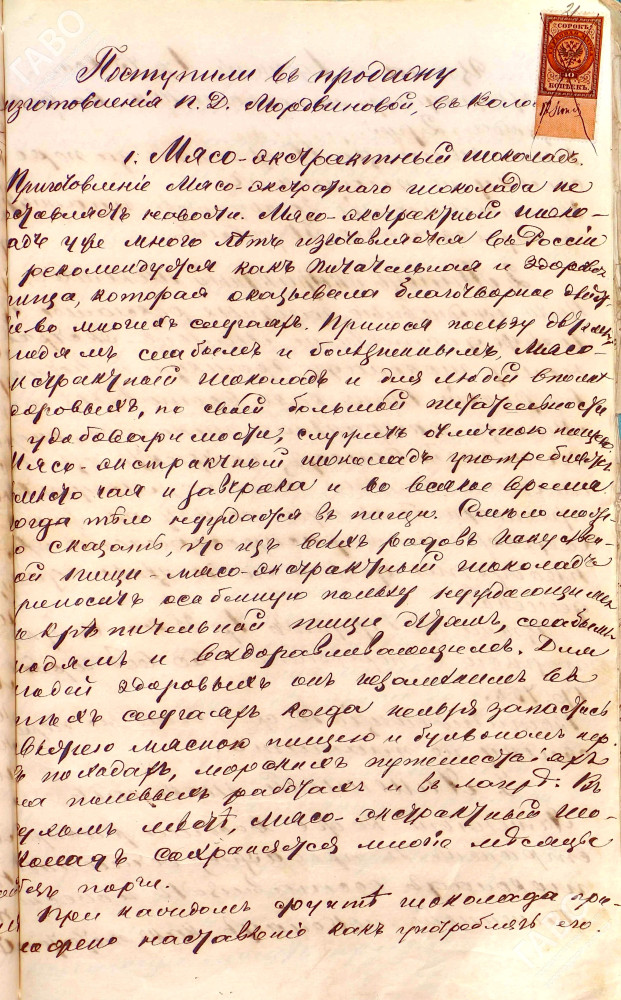 Поступили въ продажу
изготовленія П. Д. Мордвиновой, въ Коло
1. Мясо-экстрактный шоколадъ.
Приготовленіе Мясо-экстрактнаго шоколада не
оставляетъ новости. Мясо-экстрактный шоко-
ладъ уже много лѣтъ изготовляется въ Россіи
рекомендуется какъ питательная и здоровая
пища, которая оказывала благотворное дѣйст
віе во многихъ случаяхъ. Принося пользу дѣтямъ,
людямъ слабымъ и болѣзненнымъ, Мясо-
экстрактный шоколадъ и для людей вполнѣ
здоровыхъ, по своей большой питательности
удобоваримости, служитъ отличною пищею.
Мясо-экстрактный шоколадъ употребляютъ
вмѣсто чая и завтрака и во всякое время
когда тѣло нуждается въ пищи. Смѣло можно
сказать, что изъ всѣхъ родовъ искуствен-
ой пищи - мясо-экстрактный шоколадъ
приноситъ особенную пользу нуждающимся
въ крѣпительной пищи дѣтямъ, слабымъ
людямъ и выздоравливающимъ. Для
людей здоровыхъ онъ незамѣнимъ въ
тѣхъ случаяхъ когда нельзя запастись
свѣжею мясною пищею и бульономъ напр.
въ походахъ, морскихъ путешествіяхъ
на полевыхъ работахъ и въ лагерѣ. Въ
сухомъ мѣстѣ, Мясо-экстрактный шо-
коладъ сохраняется многіе мѣсяцы
безъ порчи.
При каждомъ фунтѣ шоколада при-
ложено наставленіе какъ употреблять его.
СОРОКЪ
40
КОПѢЕКЪ
ГАВО